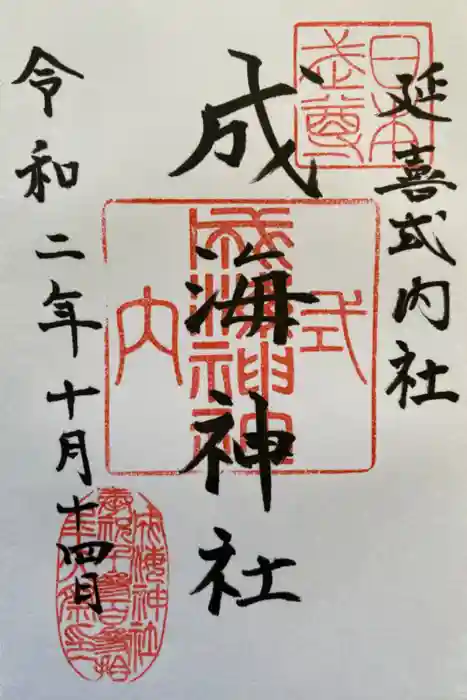 延喜式内社
日本
武尊
成海神社
式
成海神社
内
令和二年十月十四日